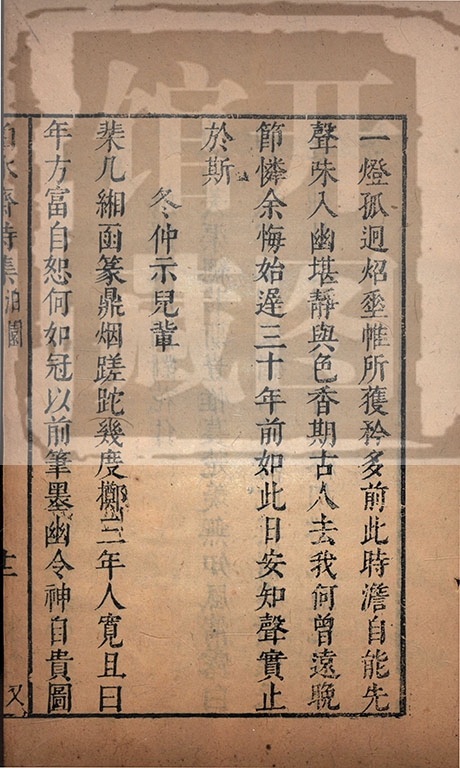 一燈孤迥炤垂帷所獲矜多前此時澹自能先
聲味入幽堪靜與色香期古人去我何曾遠晚
節憐余悔始遲三十年前如此日安知聲實止
於斯
冬仲示兒輩
棐几緗函篆鼎烟蹉跎幾度擲三年人寬且曰
年方富自恕何如冠以前筆墨幽令神自貴圖
水齋詩集